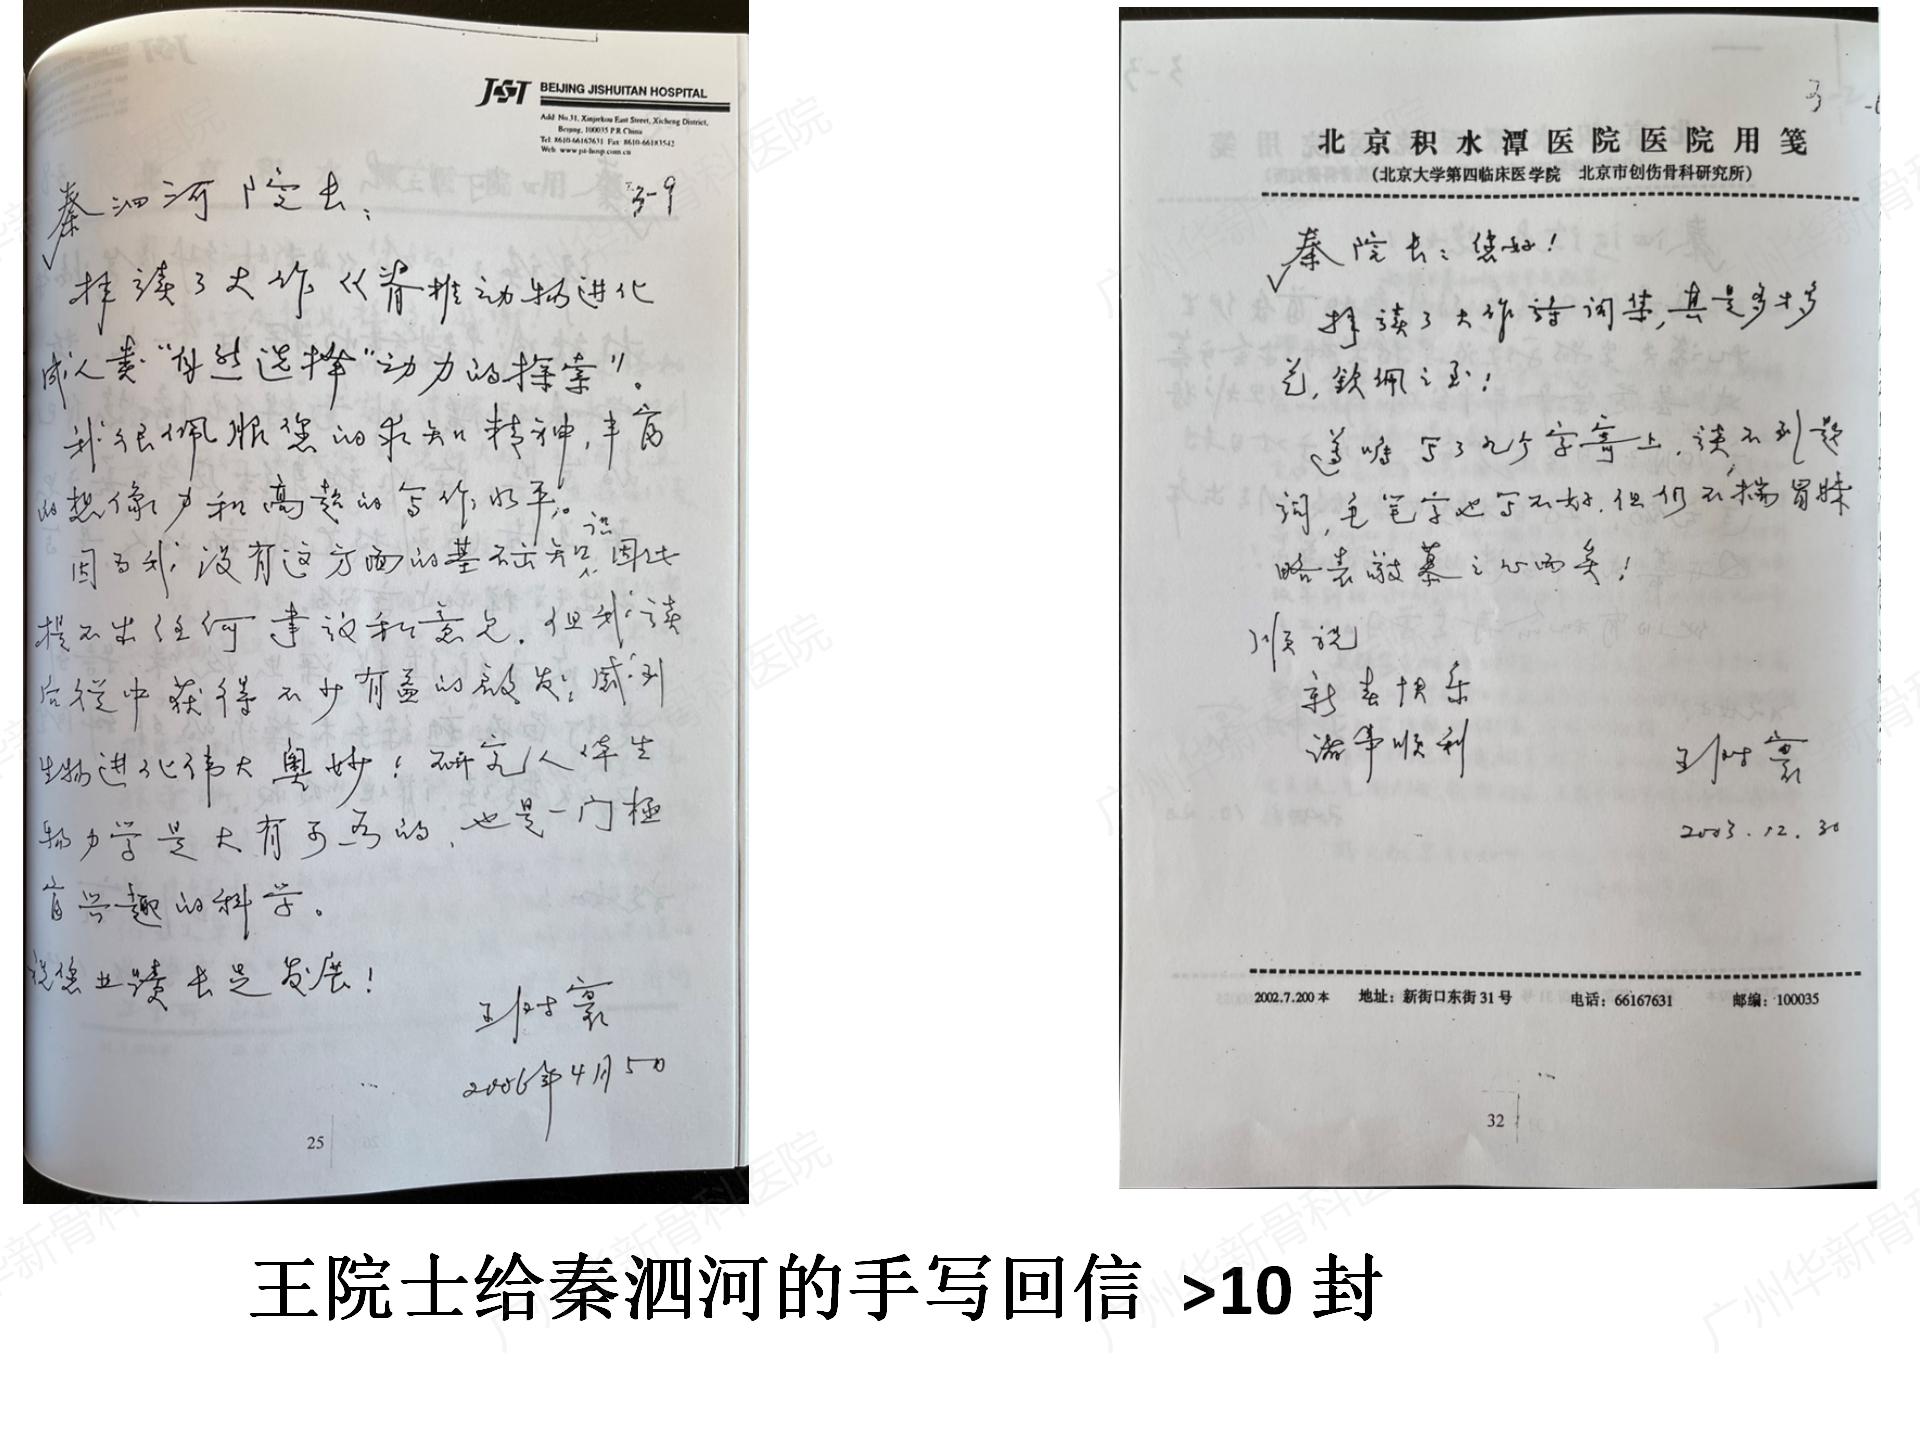 JST BEIJING JISHUITAN HOSPITAL
Add No.31, Xinjiekou East Street, Xicheng District,
Beijing, 100035 P.R China
Tel 8610-66167631 Fax 8610-66183542
Web www.jst-hosp.com.cn
3-9
秦泗河院长:
拜读了大作《脊椎动物进化
成人类“自然选择”动力的探索”。
我很佩服您的求知精神,丰富
的想像力和高超的写作水平。
因为我没有这方面的基础知识,因此
提不出任何建议和意见。但我读
后从中获得不少有益的启发,感到
生物进化伟大奥妙!研究人体生
物力学是大有可为的,也是一门极
富兴趣的科学。
祝您业绩长足发展!
王澍寰
2006年4月5日
25
北京积水潭医院医院用笺
(北京大学第四临床医学院 北京市创伤骨科研究所)
秦院长:您好!
拜读了大作诗词集,真是多才多
艺,钦佩之至!
遵嘱写了几个字寄上,谈不到题
词,毛笔字也写不好,但仍不揣冒昧
略表敬慕之心而矣!
顺祝
新春快乐
诸事顺利
王澍寰
2003.12.30
2002.7.200本 地址:新街口东街31号 电话:66167631 邮编:100035
32
王院士给秦泗河的手写回信 >10 封
广州华新骨科医院